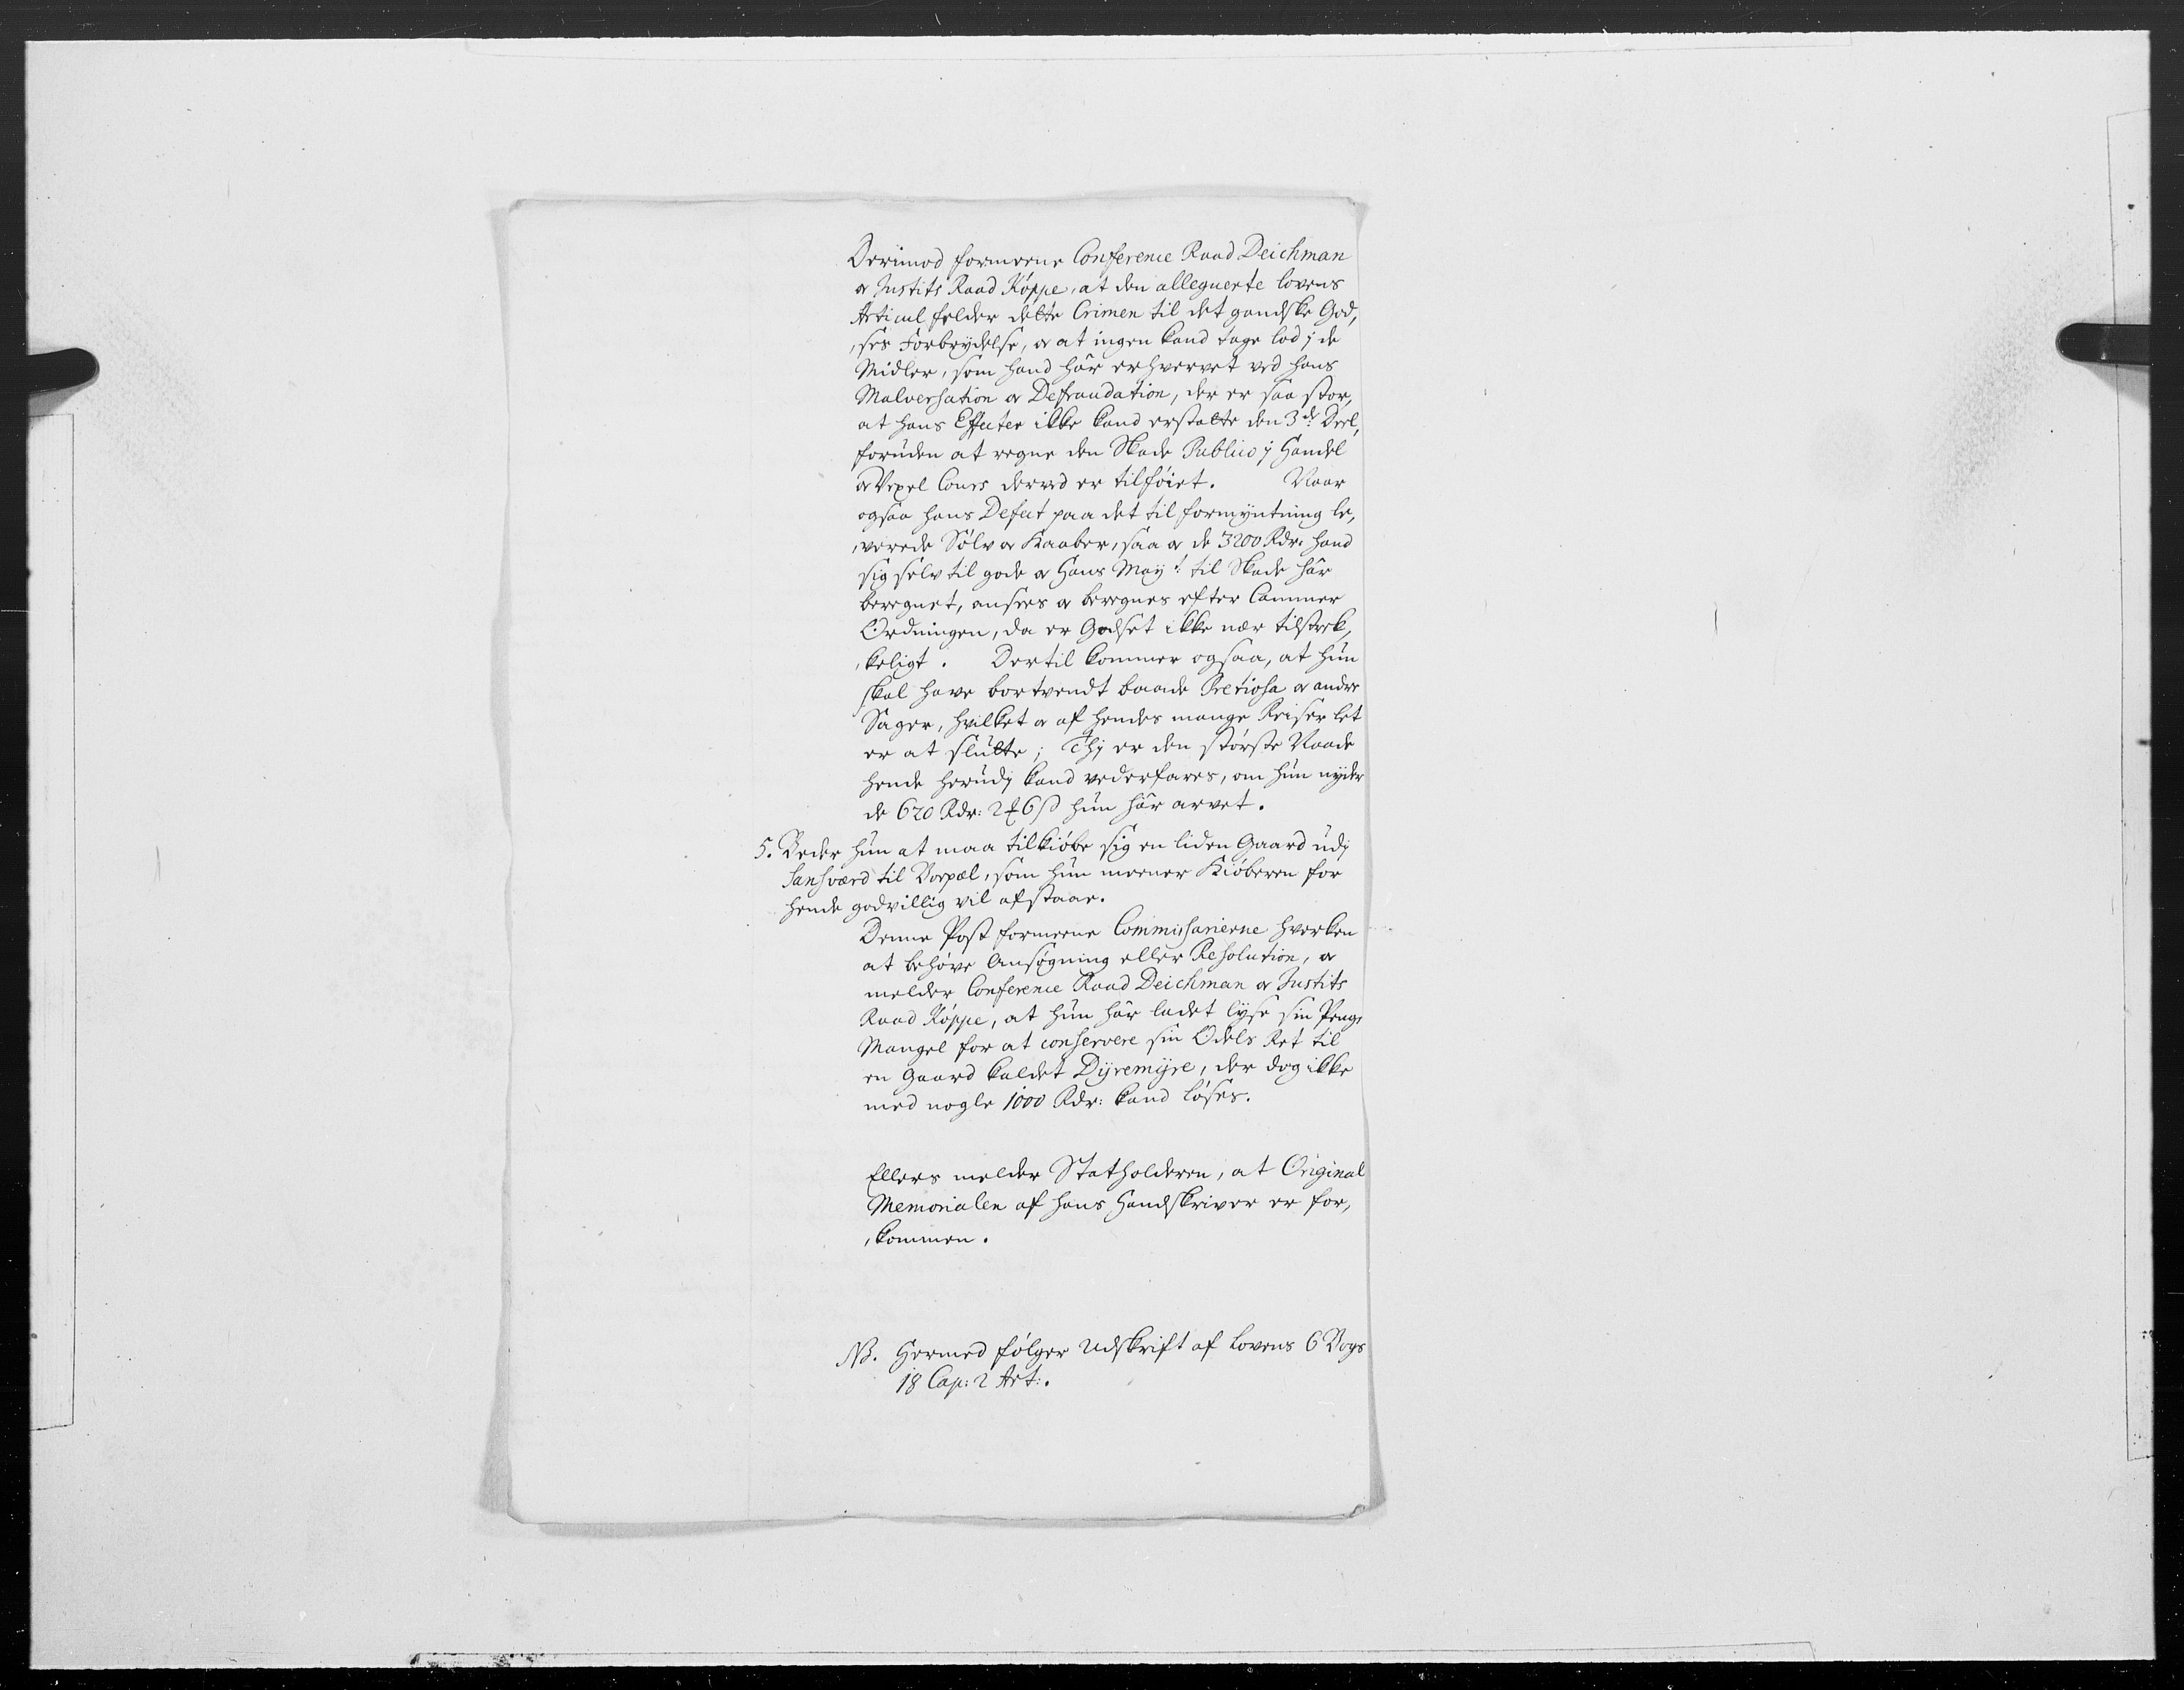 Derimod formeene Conference Raad Deichman
og Justits Raad Köppe, at den alleguerte lovens
Articul felder dette Crimen til det gandske God,
,ses Forbrydelse, og at ingen kand tage lod i de
Midler, som hand här erhvervet ved hans
Malversation og Defraudation, der er saa stor,
at hans Effecter ikke kand erstatte den 3de Deel,
foruden at regne den Skade Publico i Handel
og Vexel Cours derved er tilføiet. Naar
ogsaa hans Defect paa det til formyntning le,
,verede Sölv og Kaaber, saa og de 3200 Rdr: hand
sig selv til gode og Hans Mayt: til Skade här
beregnet, ansees og beregnes efter Cammer
Ordningen, da er Godset ikke nær tilstrek,
,keligt. Dertil kommer ogsaa, at hun
skal have bortvendt baade Pretiosa og andre
Sager, hvilket og af hendes mange Reiser let
er at slutte; Thi er den störste Naade
hende herudj kand vederfares, om hun nyder
de 620 Rdr: 2 ℔ 6 ß hun här arvet.
5. Beder hun at maa tilkiöbe sig en liden Gaard udj
Sansværd til Borpæl, som hun meener Kiöberen for
hende godvillig vil afstaae.
Denne Post formeene Commissarierne hverken
at behöve Ansögning eller Resolution, og
melder Conference Raad Deichman og Justits
Raad Köppe, at hun här ladet lyse sin Penge
Mangel for at conservere sin Odels Ret til
en Gaard kaldet Dyremyre, der dog ikke
med nogle 1000 Rdr: kand löses.
Ellers melder Statholderen, at Original
Memorialen af hans Handskriver er for,
,kommen.
NB. Hermed fölger Udskrift af Lovens 6 Bogs
18 Cap: 2 Art:.